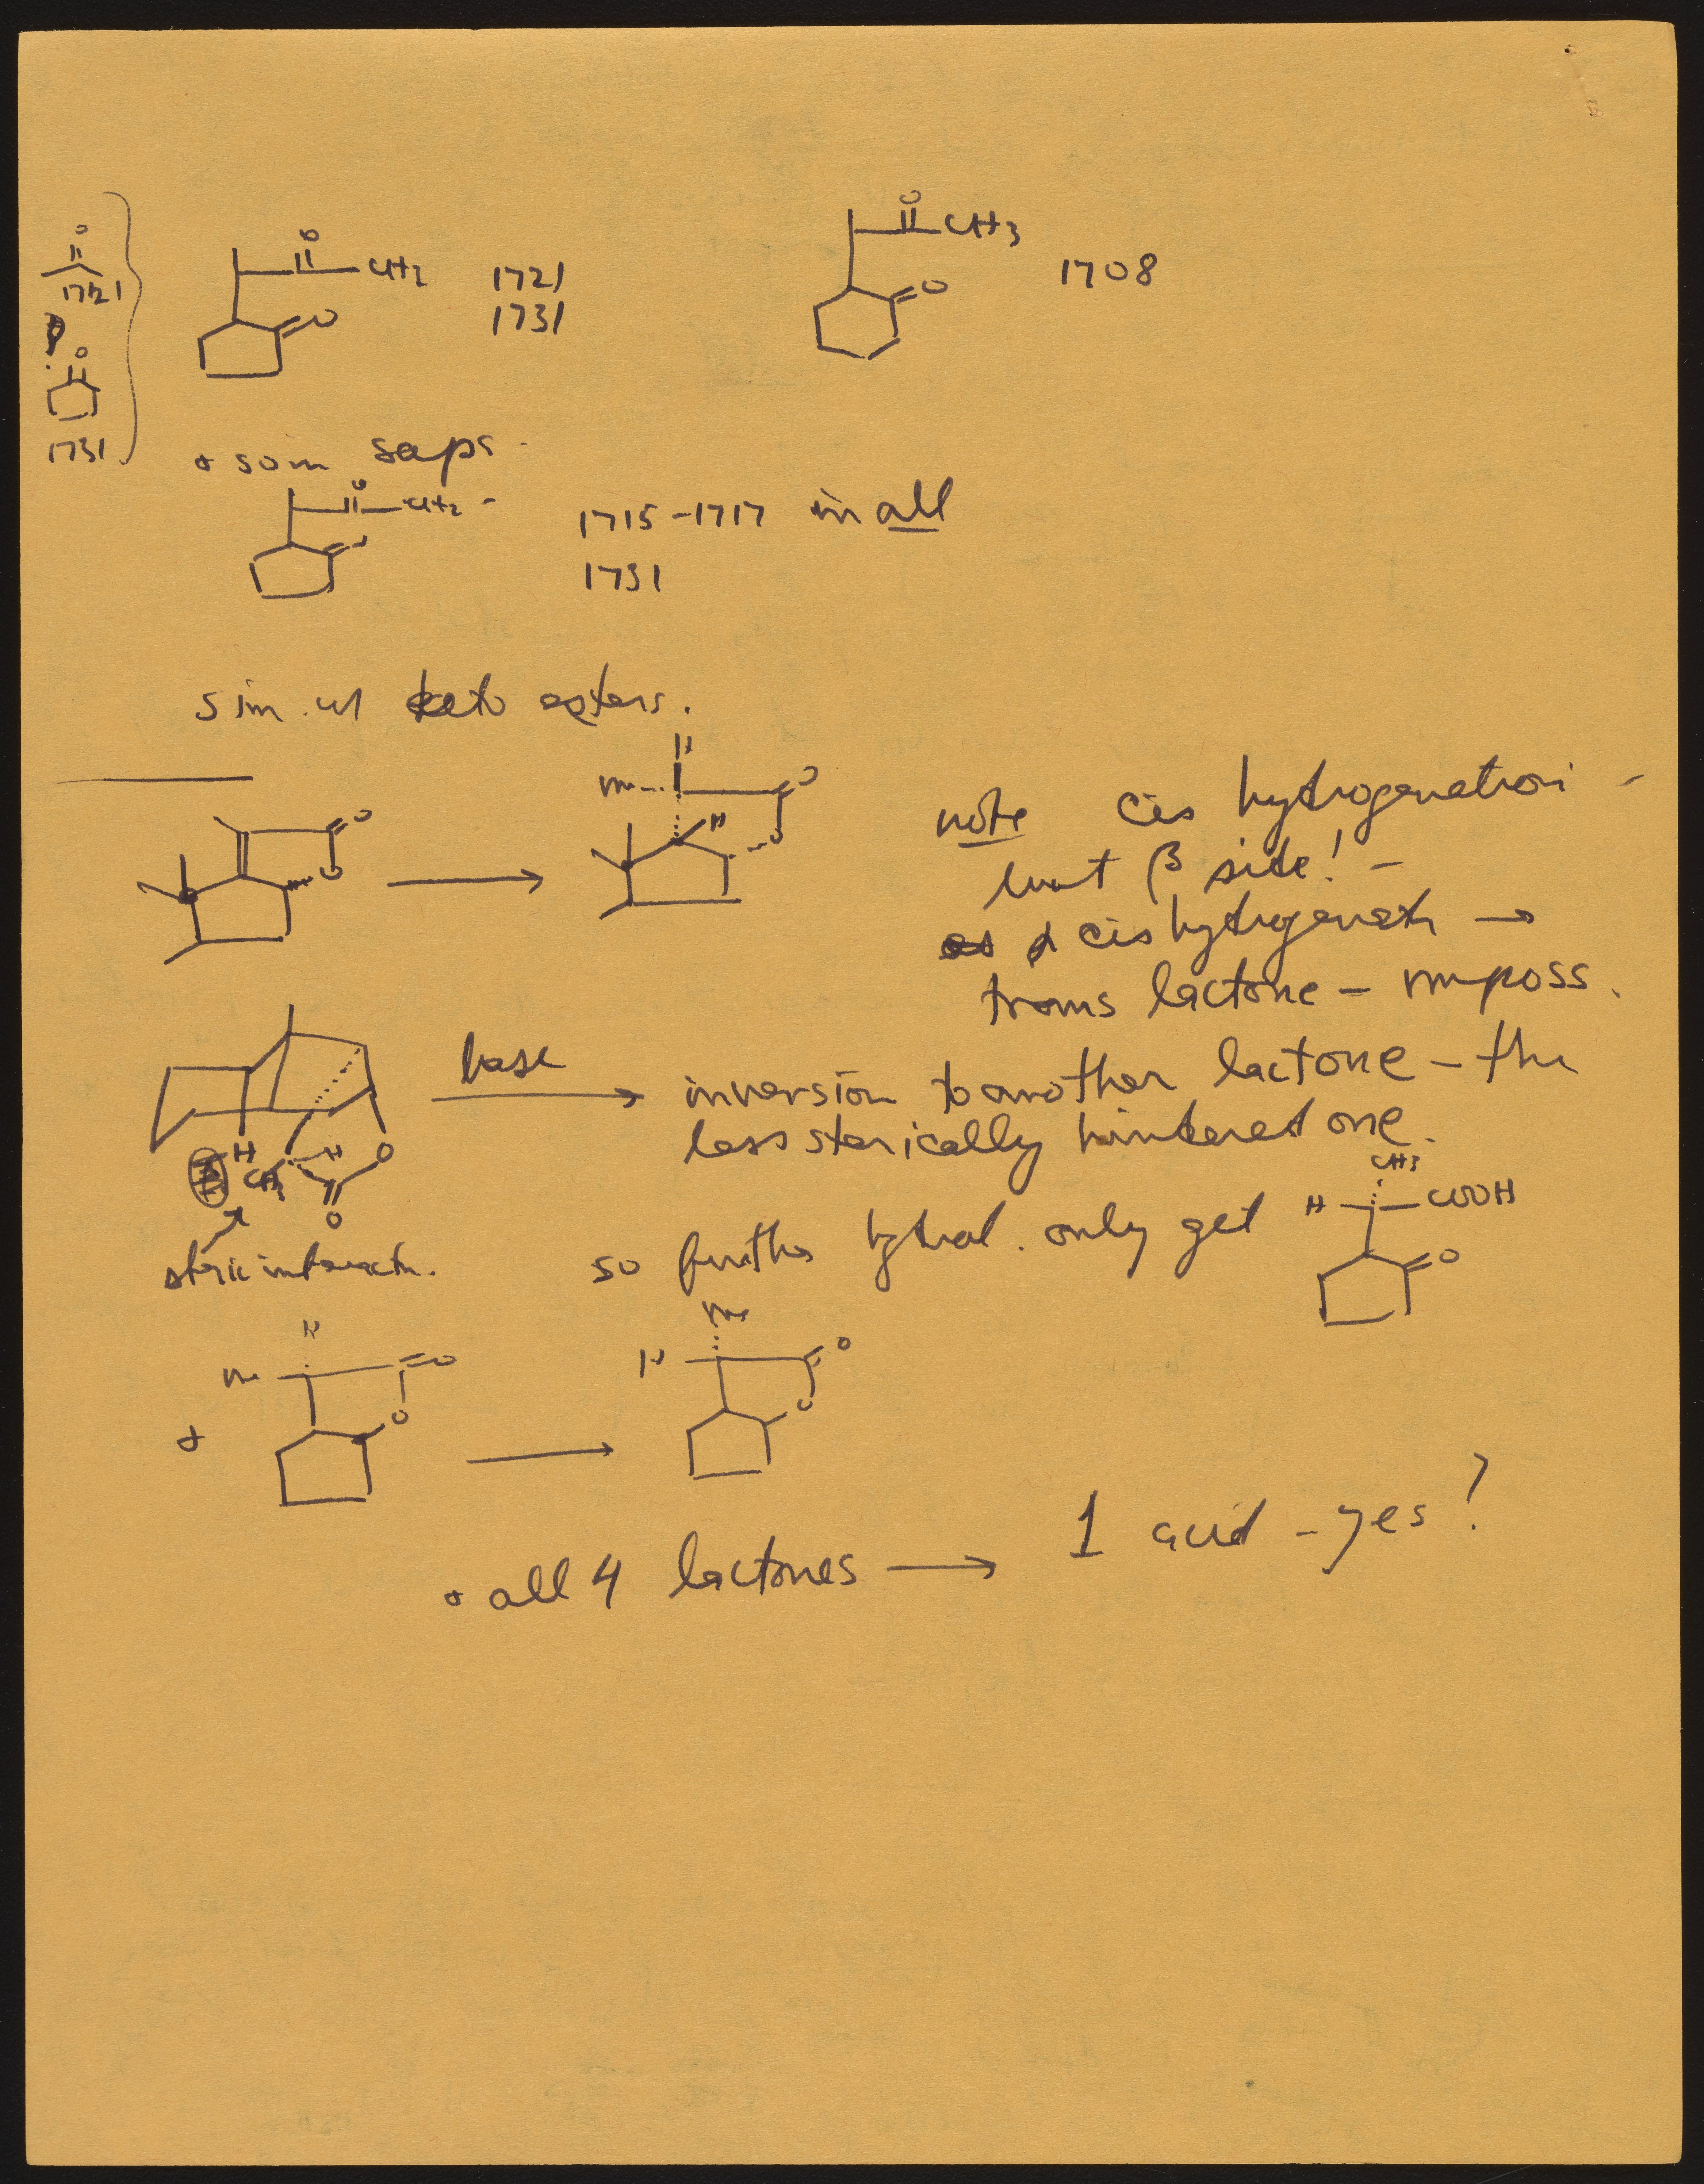 O
1721
O
1731
O
CH2
O
1721
1731
O
CH3
O
1708
+ sim saps.
CH2 -
1715-1717 in all
1731
sim. w/ keto esters.
O
O
H
Me
H
O
O
note cis hydrogenation -
β side! -
α cis hydrogenatn →
trans lactone - imposs.
base
inversion to another lactone - the
less sterically hindered one.
H
CH3
H
O
O
steric interactn.
so further hydrol. only get
CH3
H
COOH
O
H
Me
O
O
+
Me
H
O
O
+ all 4 lactones → 1 acid - yes?